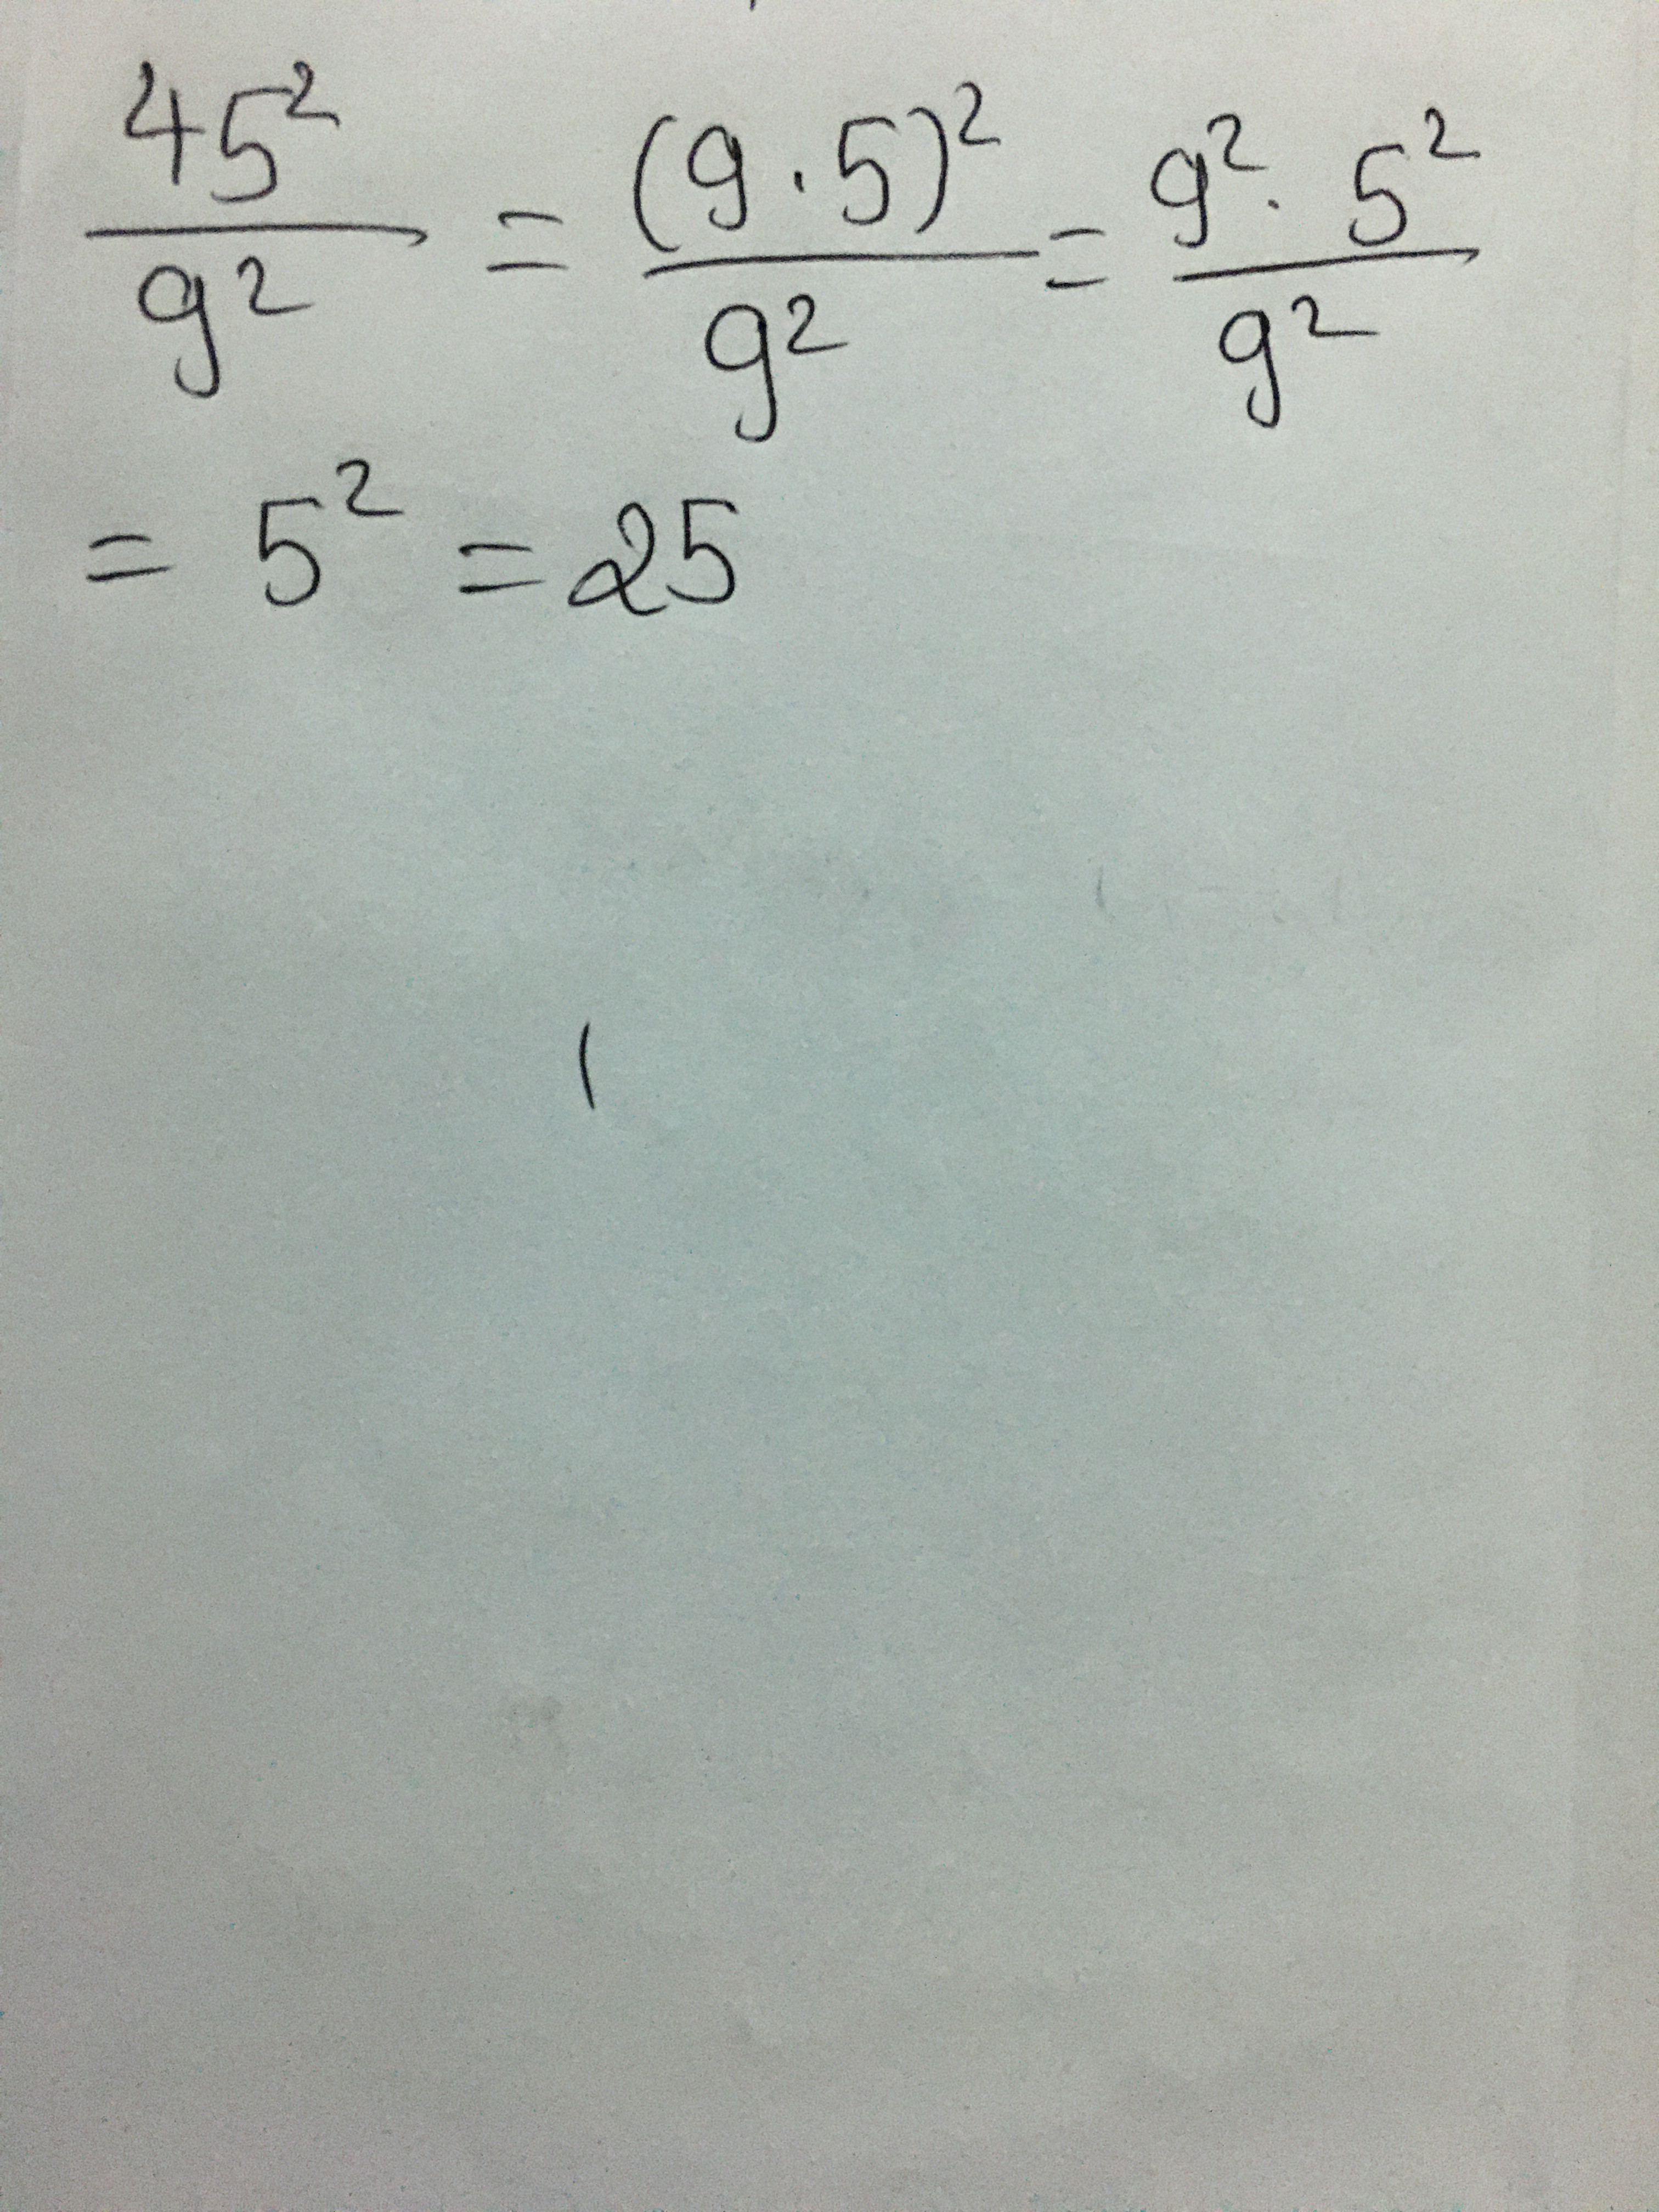 45²/9² = (9·5)²/9² = 9²·5²/9²
= 5² = 25